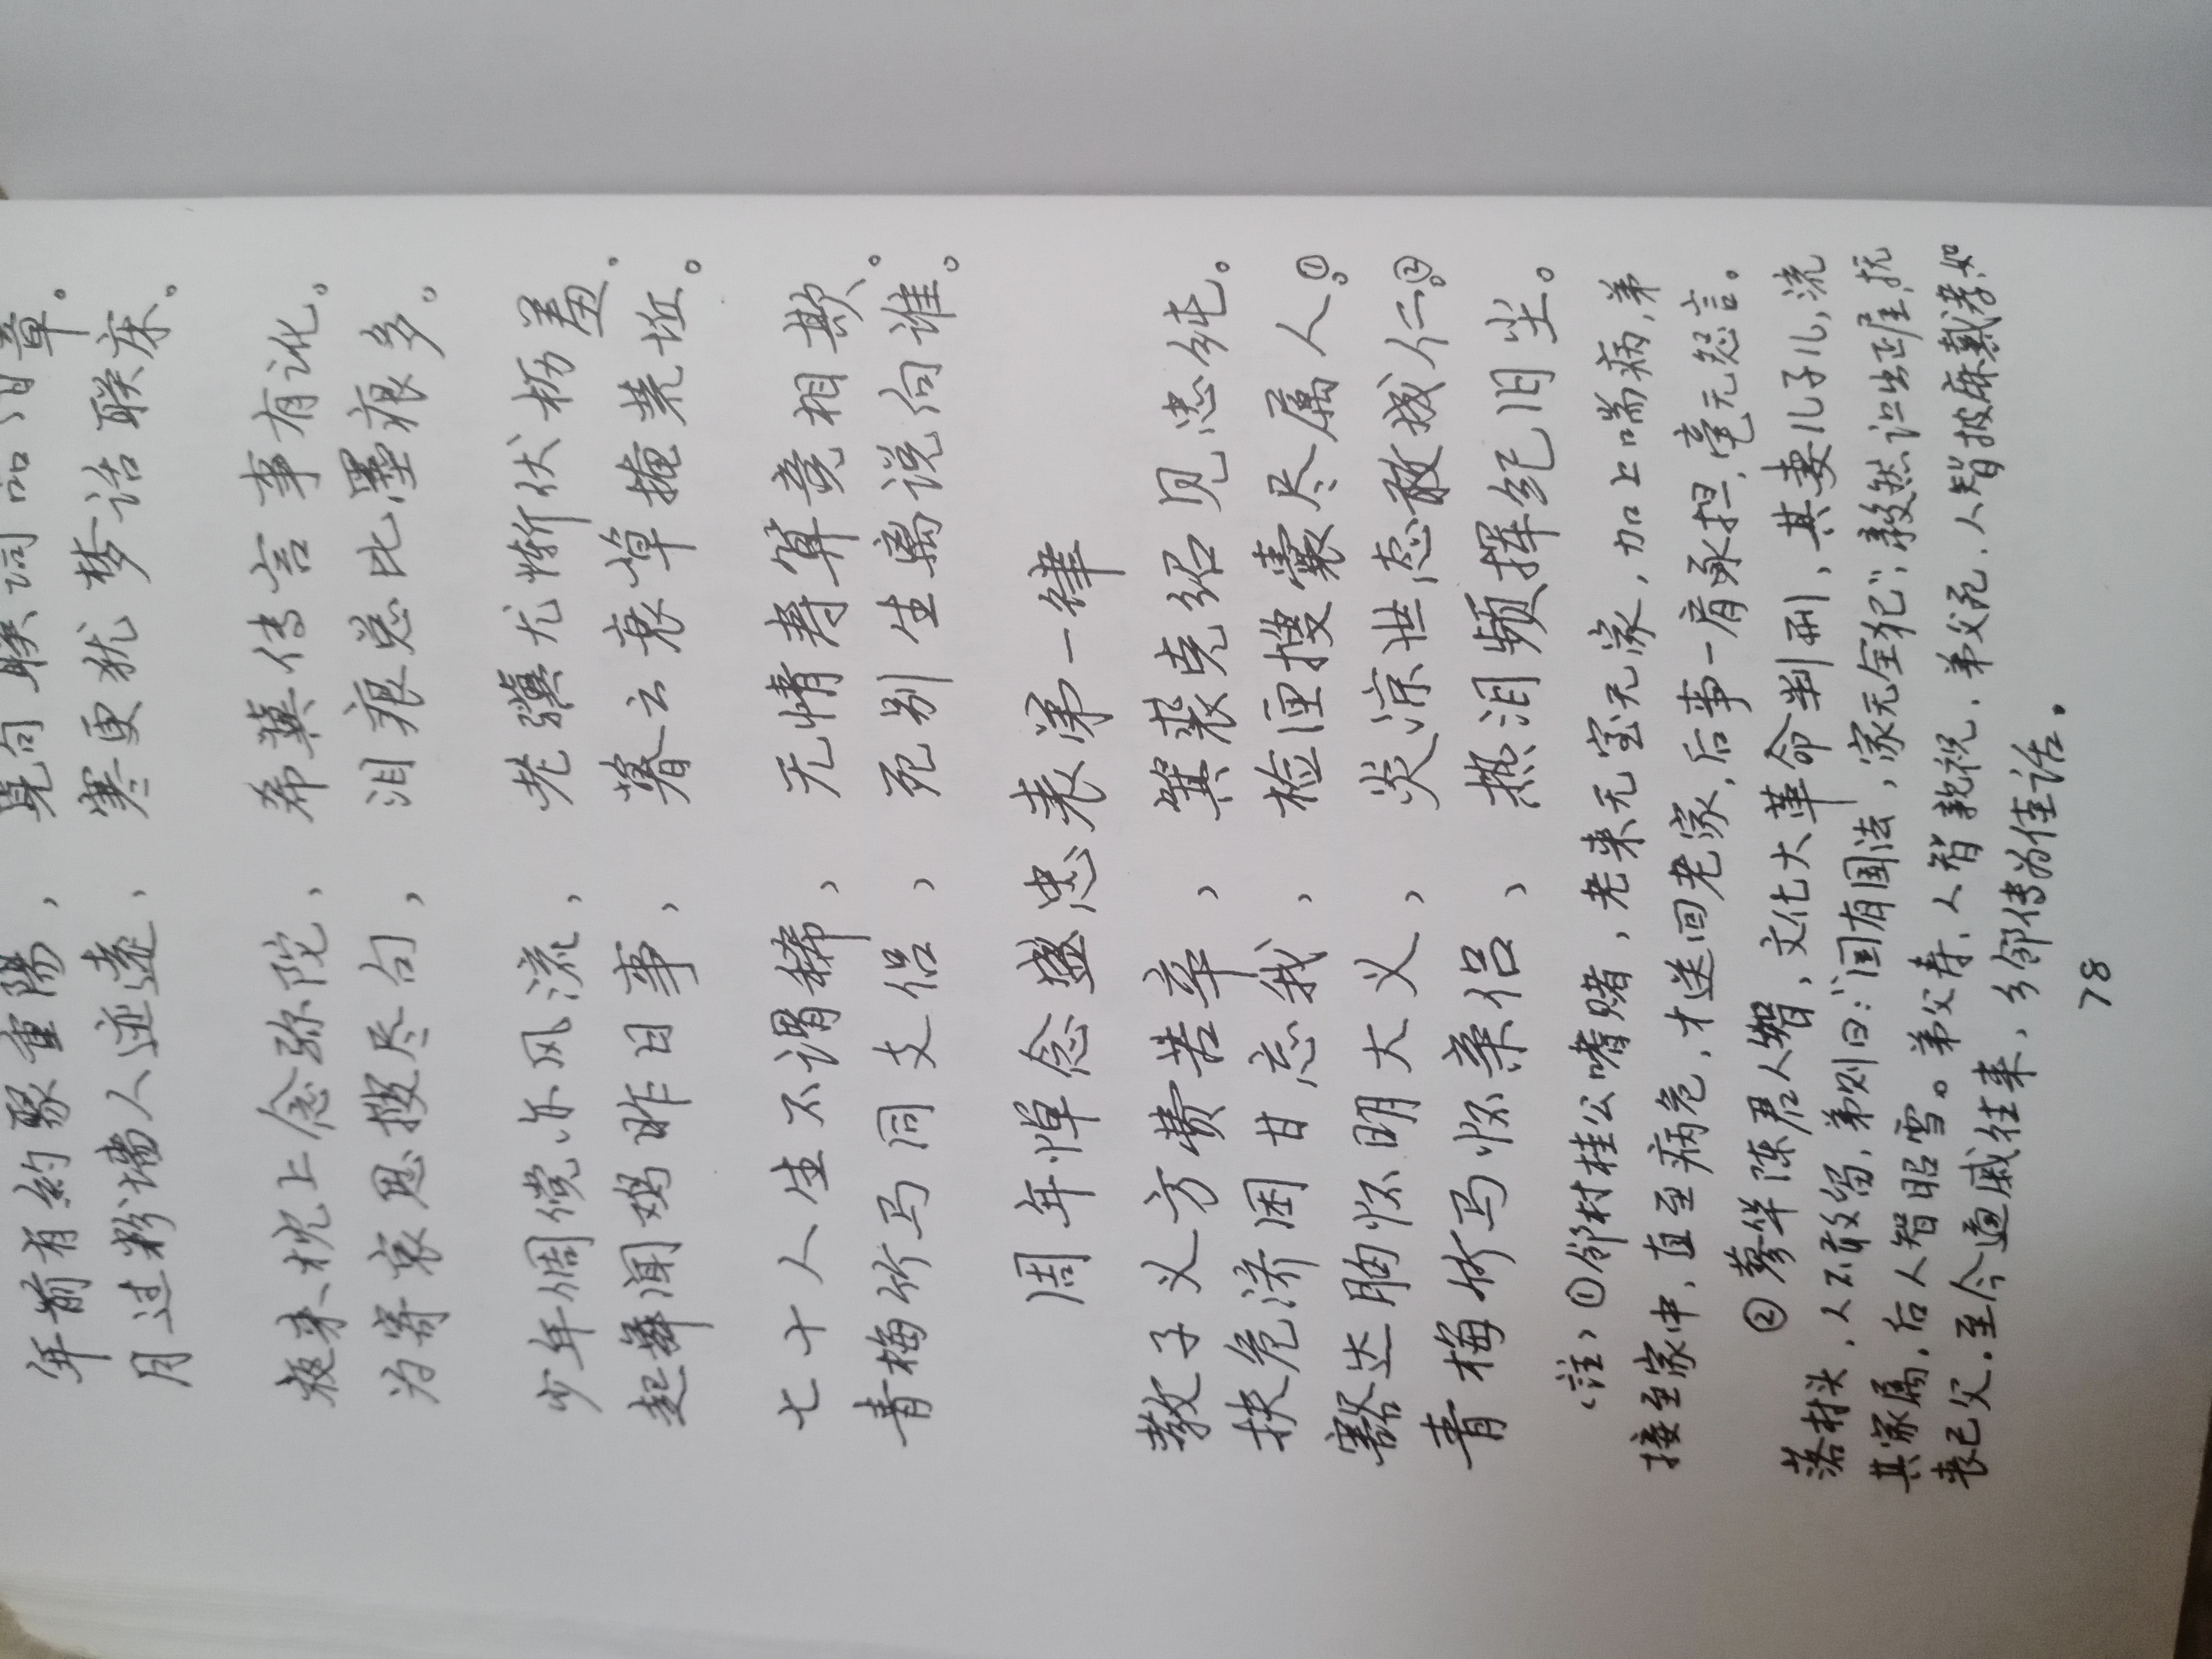 年前有約聚重陽, 觅句联词
月过粉墙人迹远, 寒更犹梦话联床。
夜来枕上念弥陀, 希冀传言事有讹。
为寄哀思搜尽句, 泪痕总比墨痕多。
少年倜傥亦风流, 老骥尤惭伏枥羞。
起舞闻鸡昨日事, 暮云衰草掩荒坵。
七十人生不谓稀, 无情寿算竟相欺。
青梅竹马同支侣, 死别生离说向谁。
周年悼念盛忠表弟一律
教子义方费苦辛, 箕裘克绍见忠纯。
扶危济困甘忘我, 检匣搜囊尽属人。①
豁达胸怀明大义, 炎凉世态敢拨仁。②
青梅竹马怀亲侣, 热泪频挥纪旧尘。
〈註〉①邻村桂公嗜赌, 老来无室无家, 加上喘病, 弟
接至家中, 直至病危, 才送回老家, 后事一肩承担, 毫无怨言。
②蓼华陈君人智, 文化大革命判刑, 其妻儿子儿, 流
落村头, 人不敢留, 弟则曰:“国有国法, 家无全犯”, 毅然让出正屋, 抚
其家属, 后人智昭雪。弟父寿, 人智亲祝, 弟父死, 人智披麻戴孝, 如
丧己父, 至今通戚往来, 乡邻传为佳话。
78